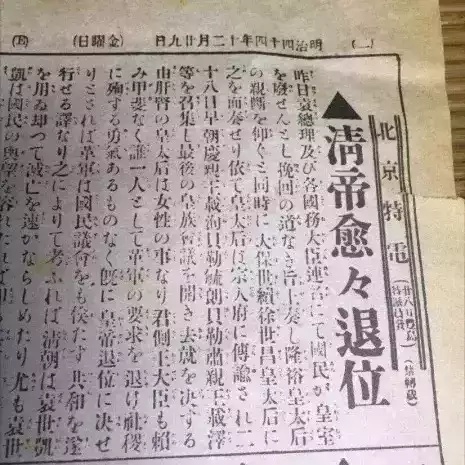 (二)
明治四十四年十二月廿九日
(金曜日)
北京特電
特派員發
(禁轉載)
▲清帝愈々退位
昨日袁總理及び各國務大臣連名にて國民が皇室
を廢せんとし挽回の道なき旨上奏し隆裕皇太后
の親斷を仰ぐと同時に太保世續徐世昌皇太后に
之を面奏せり依て皇太后は宗人府に傳諭され二
十八日早朝慶親王載洵貝勒毓朗貝勒肅親王載澤
等を召集し最後の皇族會議を開き去就を決する
由肝腎の皇太后は女性の事なり君側王大臣も賴
み甲斐なく誰一人として革軍の要求を退け社稷
に殉する勇氣あるものなく既に皇帝退位に決せ
りとされば革軍は國民議會をも俟たす共和を遂
行せる譯なり之によりて考ふれば清朝は袁世凱
を用ゐ却つて滅亡を速かならしめたり尤も袁世
凱は國民の輿望を容れたれば